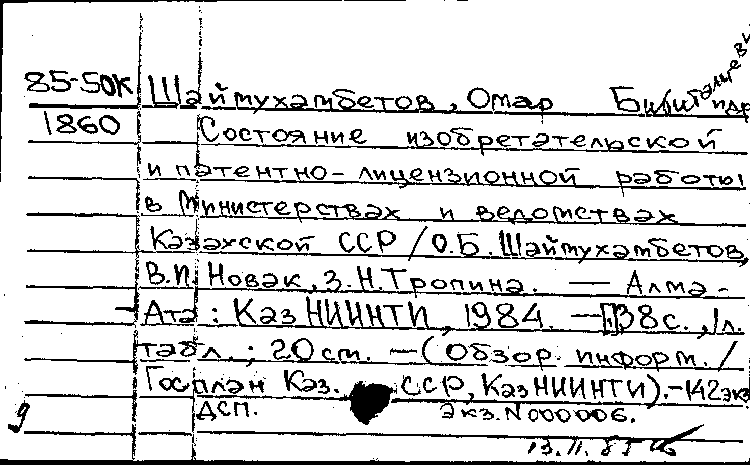 85-50К Шаймухамбетов, Омар
1860 Состояние изобретательской
и патентно-лицензионной работы
в Министерствах и ведомствах
Казахской ССР / О.Б. Шаймухамбетов,
В.П. Новак, З.Н. Тропина. — Алма-
Ата : КазНИИНТИ, 1984. — 38 с., 1 л.
табл. ; 20 см. — (Обзор. информ. /
Госплан Каз. ССР, КазНИИНТИ). - 142 экз
ДСП. Экз. N 000006.
9